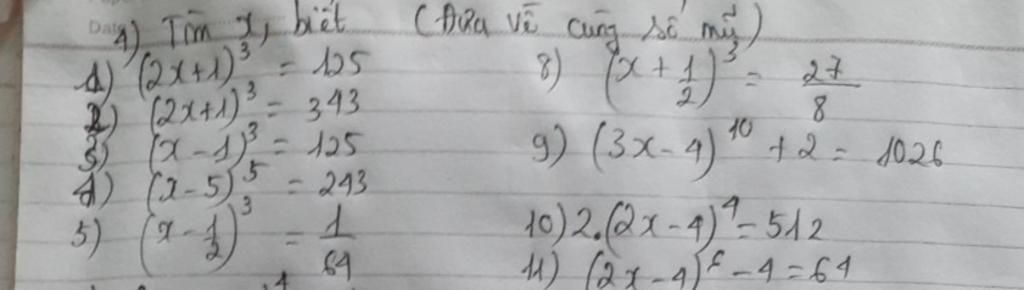 4) Tìm x, biết (Đưa về cùng số mũ)
1) (2x+1)³ = 125
2) (2x+1)³ = 343
3) (x-1)³ = 125
4) (x-5)⁵ = 243
5) (x - 1/2)³ = 1/64
8) (x + 1/2)³ = 27/8
9) (3x-4)¹⁰ + 2 = 1026
10) 2.(2x-4)⁴ = 512
11) (2x-4) - 4 = 64